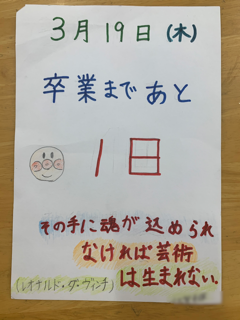 3月19日(木)
卒業まであと
1日
その手に魂が込められ
なければ芸術
は生まれない。
(レオナルド・ダ・ヴィンチ)